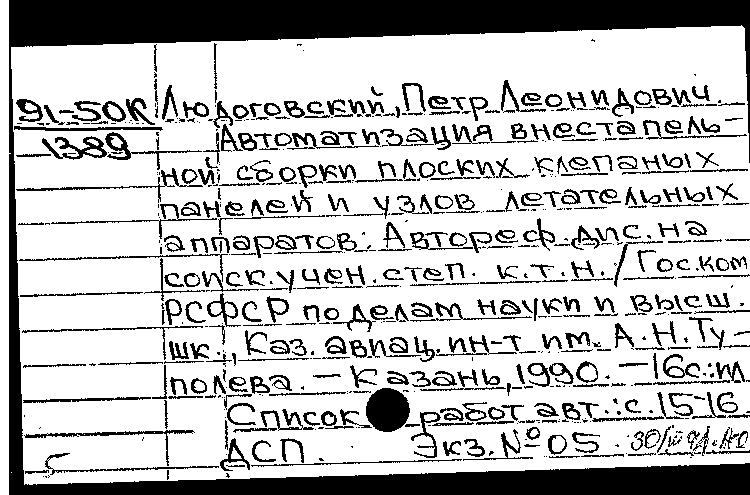 91-50К Людоговский, Петр Леонидович.
1389 Автоматизация внестапель-
ной сборки плоских клепаных
панелей и узлов летательных
аппаратов: Автореф.дис.на
соиск.учен.степ. к.т.н./Гос.ком
РСФСР по делам науки и высш.
шк., Каз.авиац.ин-т им. А.Н.Ту-
полева. — Казань, 1990. — 16с.:ил
Список работ авт.: с.15-16.
5 ДСП. Экз.№ 05.